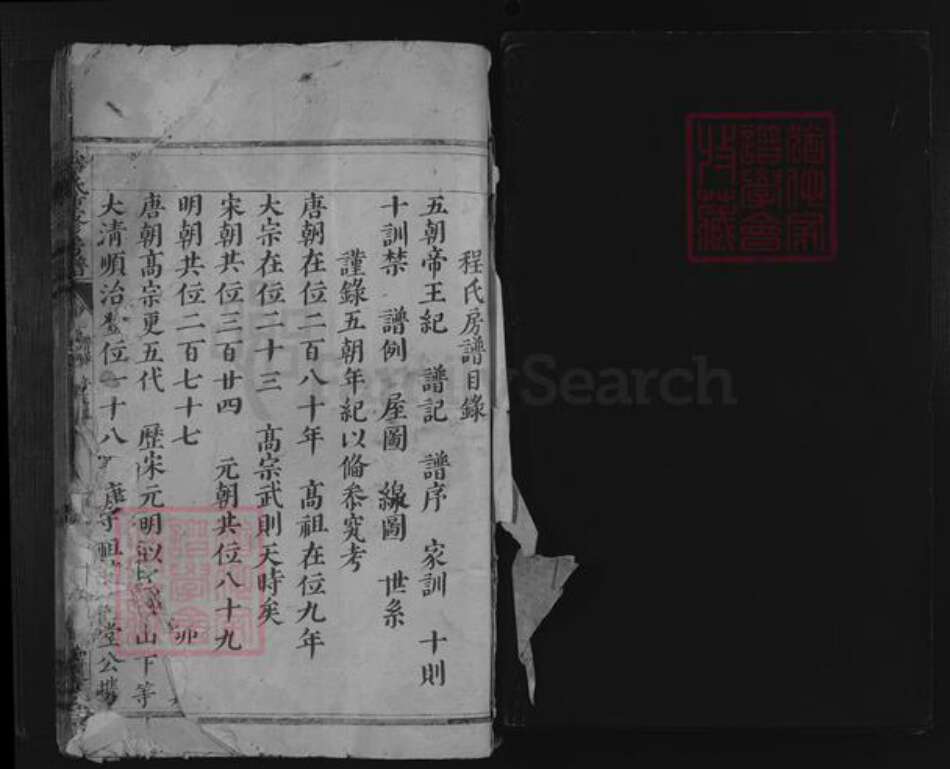 程氏房譜目錄
五朝帝王紀 譜記 譜序 家訓 十則
十訓禁 譜例 屋圖 線圖 世系
謹錄五朝年紀以俻叅究考
唐朝在位二百八十年 髙祖在位九年
大宗在位二十三 髙宗武則天時矣
宋朝共位三百廿四 元朝共位八十九
明朝共位二百七十七
唐朝髙宗更五代 歷宋元明以 山下等
大清順治 位一十八 堂公
FamilySearch